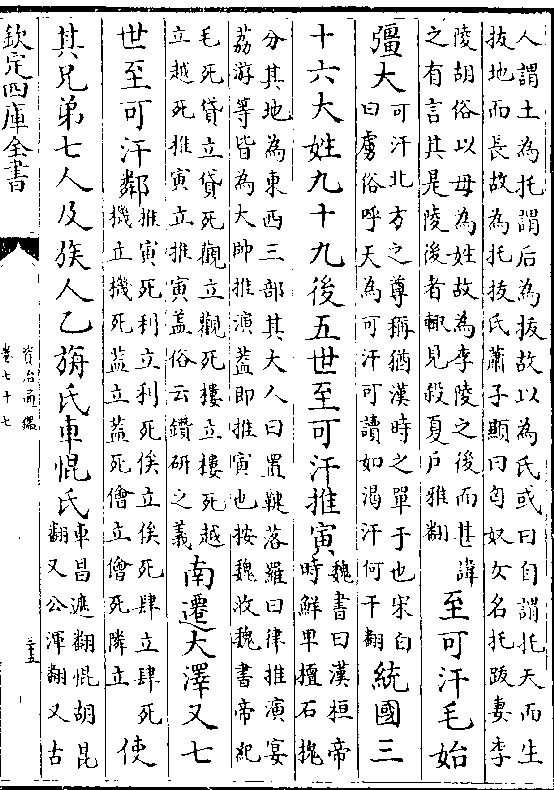 人謂土為托謂后為拔故以為氏或曰自謂托天而生
拔地而長故為托拔氏蕭子顯曰匈奴女名托跋妻李
陵胡俗以母為姓故為李陵之後而甚諱
之有言其是陵後者輒見殺夏戶雅翻
至可汗毛始
彊大
可汗北方之尊稱猶漢時之單于也宋白
曰虜俗呼天為可汗可讀如渴汗何干翻
統國三
十六大姓九十九後五世至可汗推寅
魏書曰漢桓帝
時鮮卑檀石槐
分其地為東西三部其大人曰置鞬落羅曰律推演宴
荔游等皆為大帥推演蓋即推寅也按魏收魏書帝紀
毛死貸立貸死觀立觀死樓立樓死越
立越死推寅立推寅蓋俗云鑽研之義
南遷大澤又七
世至可汗鄰
推寅死利立利死俟立俟死肆立肆死
機立機死蓋立蓋死儈立儈死隣立
使
其兄弟七人及族人乙旃氏車惃氏
車昌遮翻惃胡昆
翻又公渾翻又古
欽定四庫全書
資治通鑑
卷七十七
三五